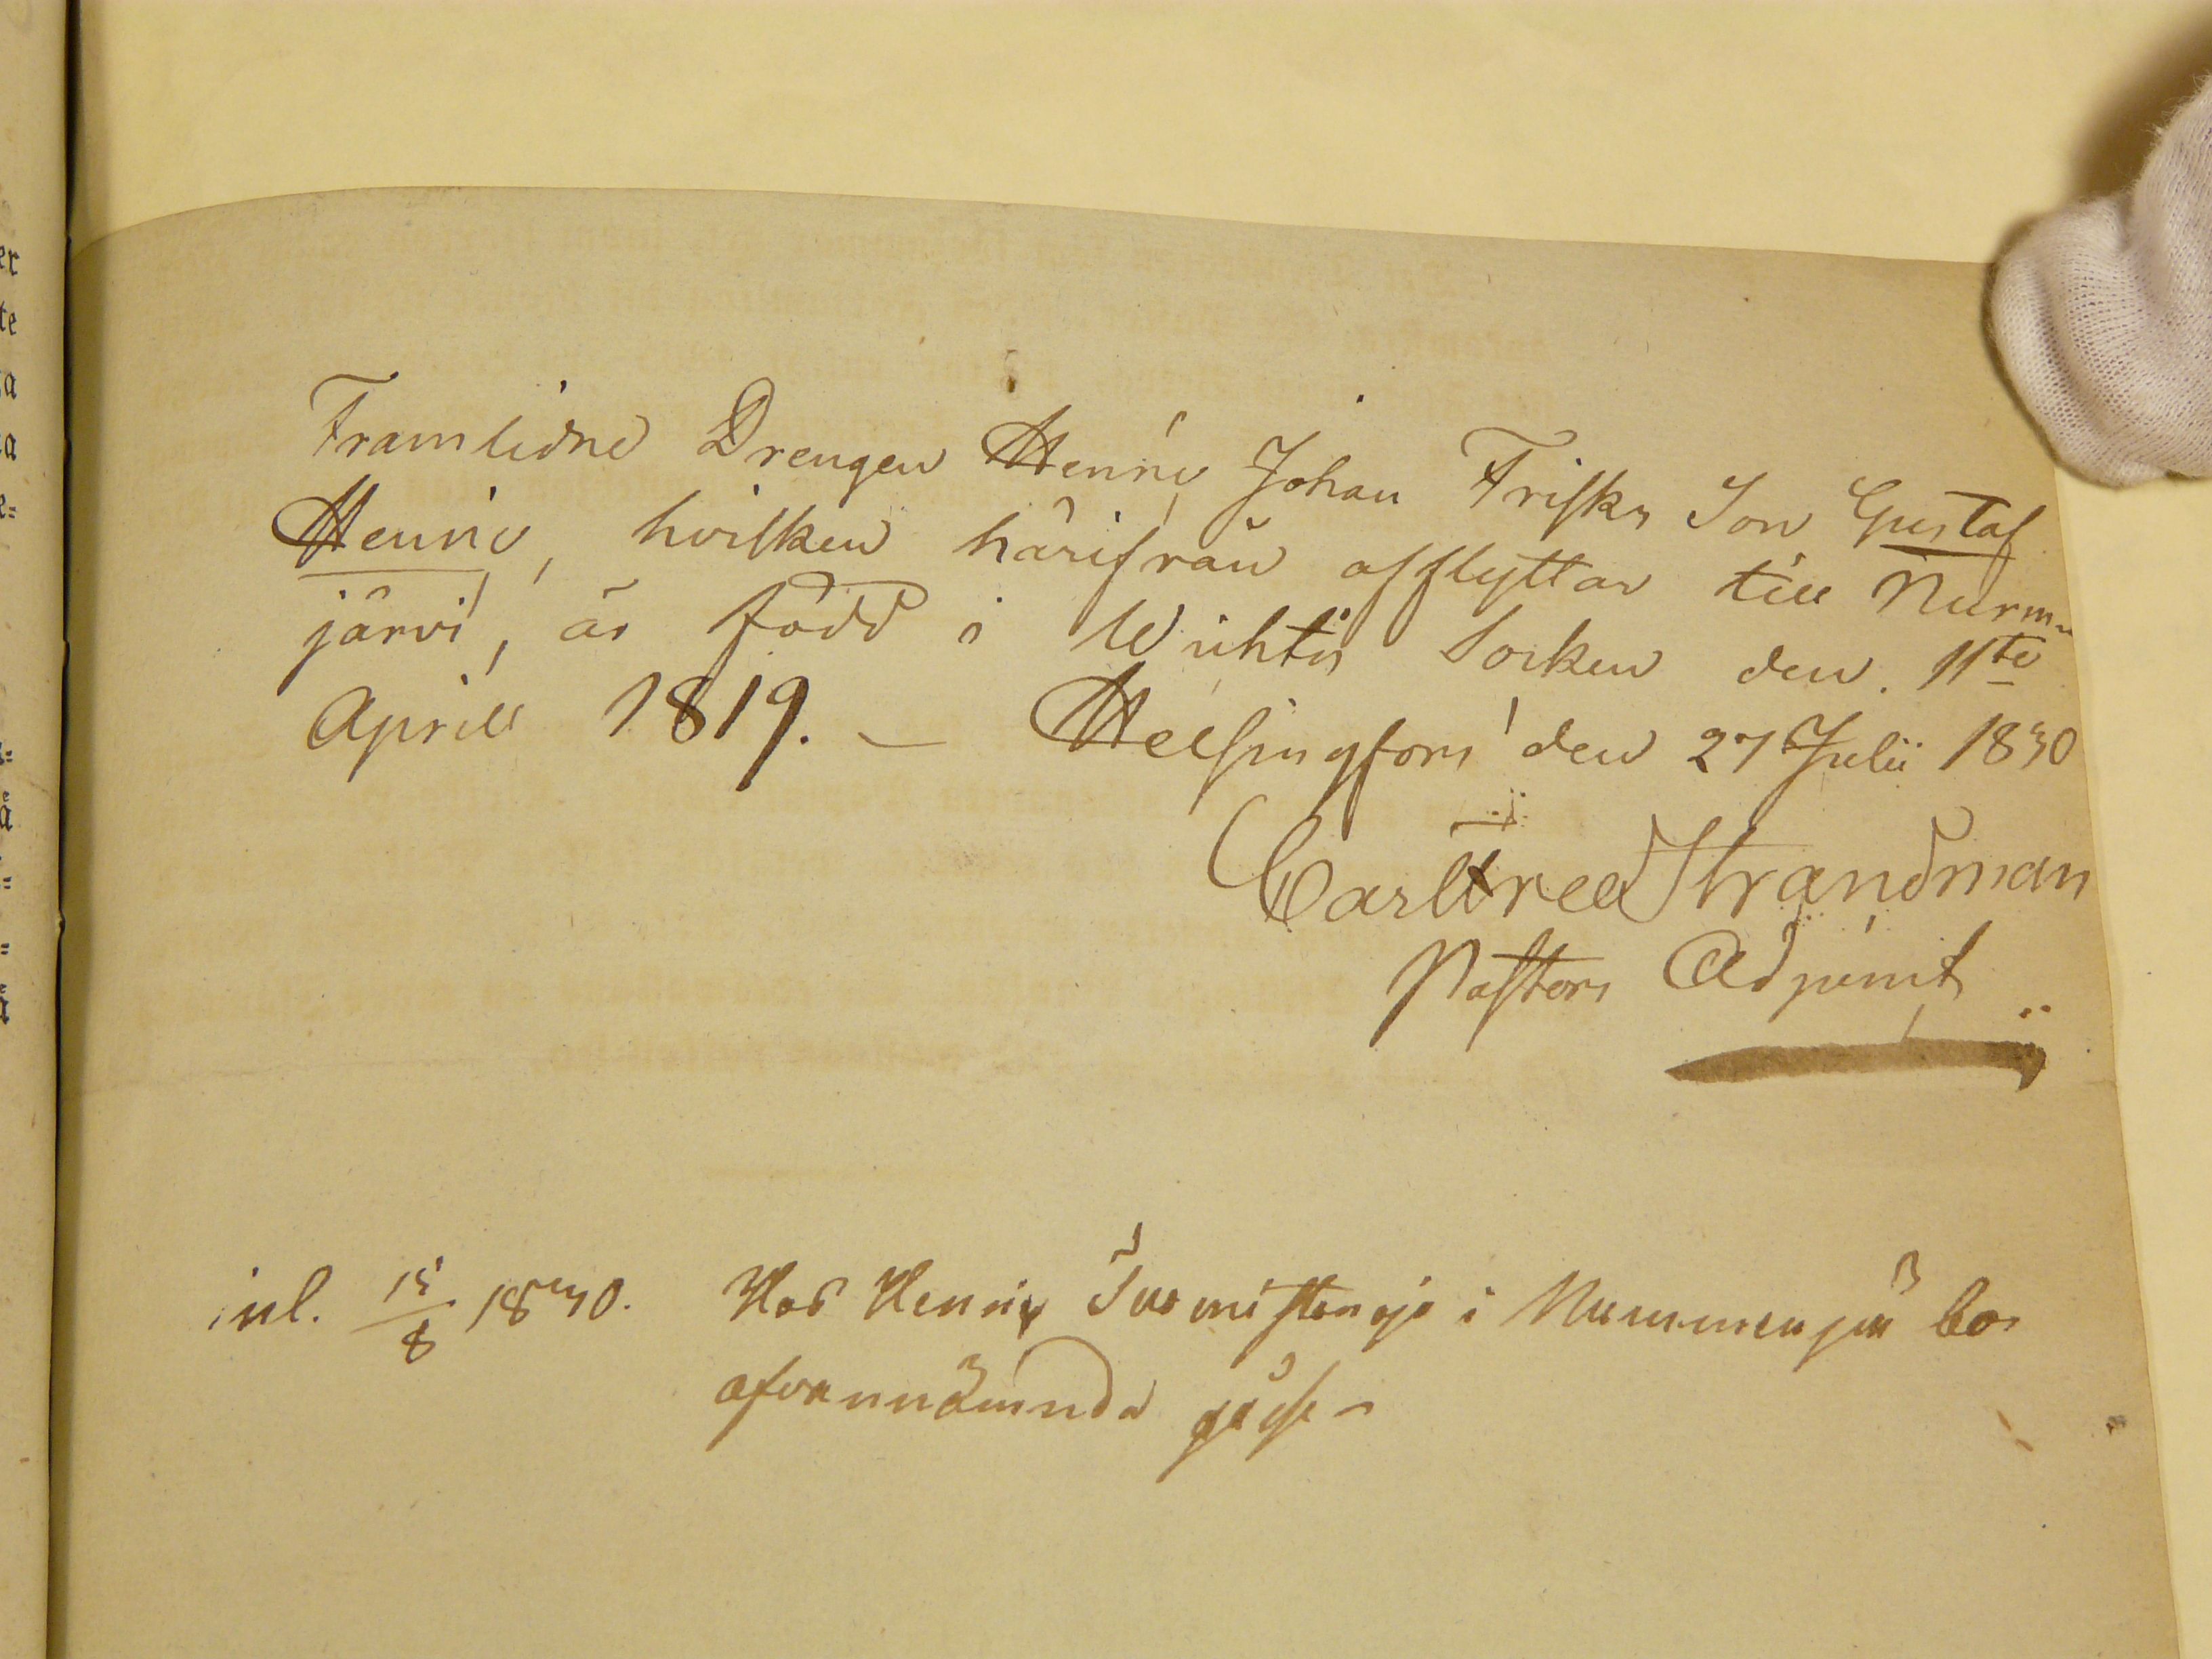 er
te
a
a
e=
Framlidne Drengen Henric Johan Frisks Son Gustaf
Henric, hvilken härifrån afflyttar till Nurm-
järvi, är född i Wichtis Socken den 11te
Aprill 1819. — Helsingfors den 27 Julii 1830
Carl Fred Strandman
Pastors Adjunct
inl. 15/8 1830. Hos Henric i Nummenpää bor
ofvannämnda gosse